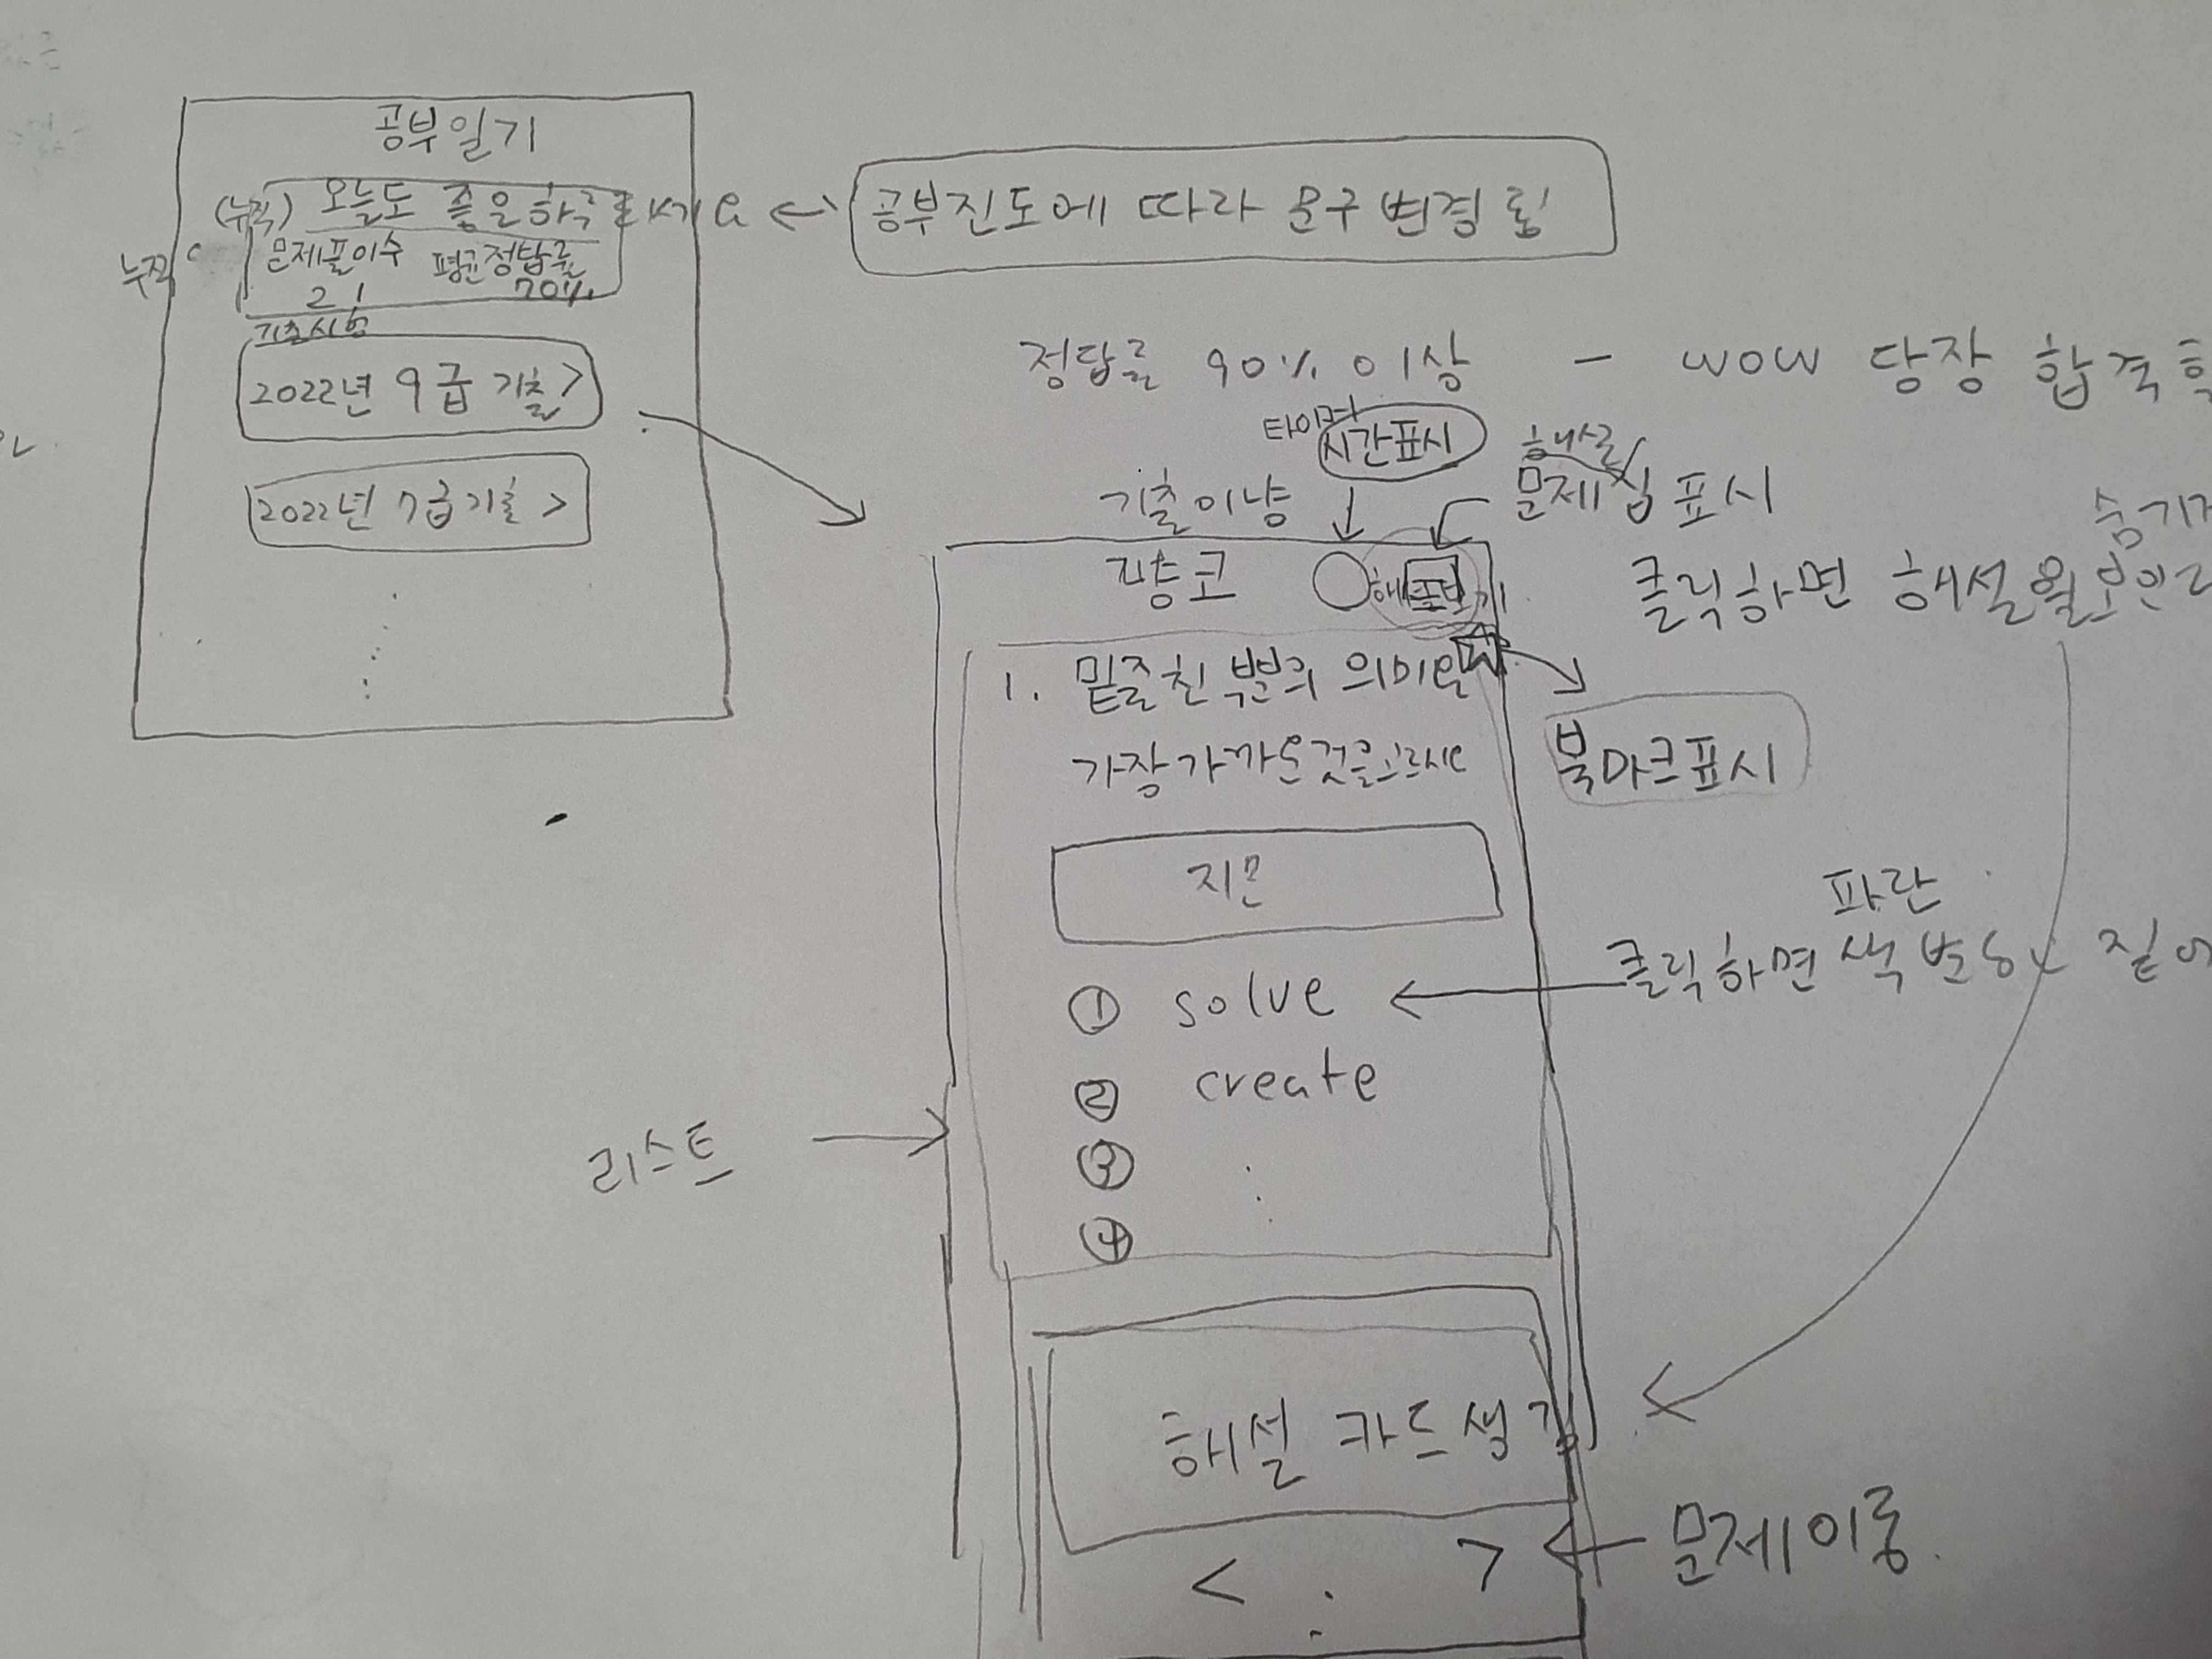 공부일기
(누적) 오늘도 좋은하루되세요
누적
문제풀이수 평균정답률
21 70%
기출시험
2022년 9급 기출 >
2022년 7급 기출 >
공부진도에 따라 문구 변경 됨
정답률 90% 이상 - wow 당장 합격
타이머
시간표시
해설
문제집 표시
기출이냥
클릭하면 해설
1. 밑줄친 부분의 의미와
가장 가까운 것을 고르시오
북마크표시
지문
파란
클릭하면 색 변
① solve
② create
③
④
리스트
해설 카드
< >
문제이동